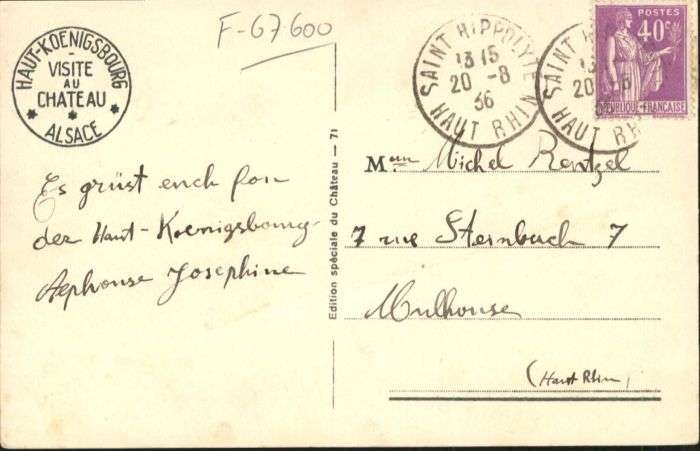 F-67600
HAUT-KOENIGSBOURG
VISITE
AU
CHATEAU
ALSACE
Es grüst euch fon
der Haut-Koenigsbourg
Alphonse Josephine
Edition spéciale du Château — 71
SAINT HIPPOLYTE
13 15
20 -8
36
HAUT RHIN
SAINT H
13
20 -8
HAUT RH
POSTES
40c
REPUBLIQUE-FRANCAISE
Michel Rentzel
7 rue Steinbach 7
Mulhouse
(Haut Rhin)